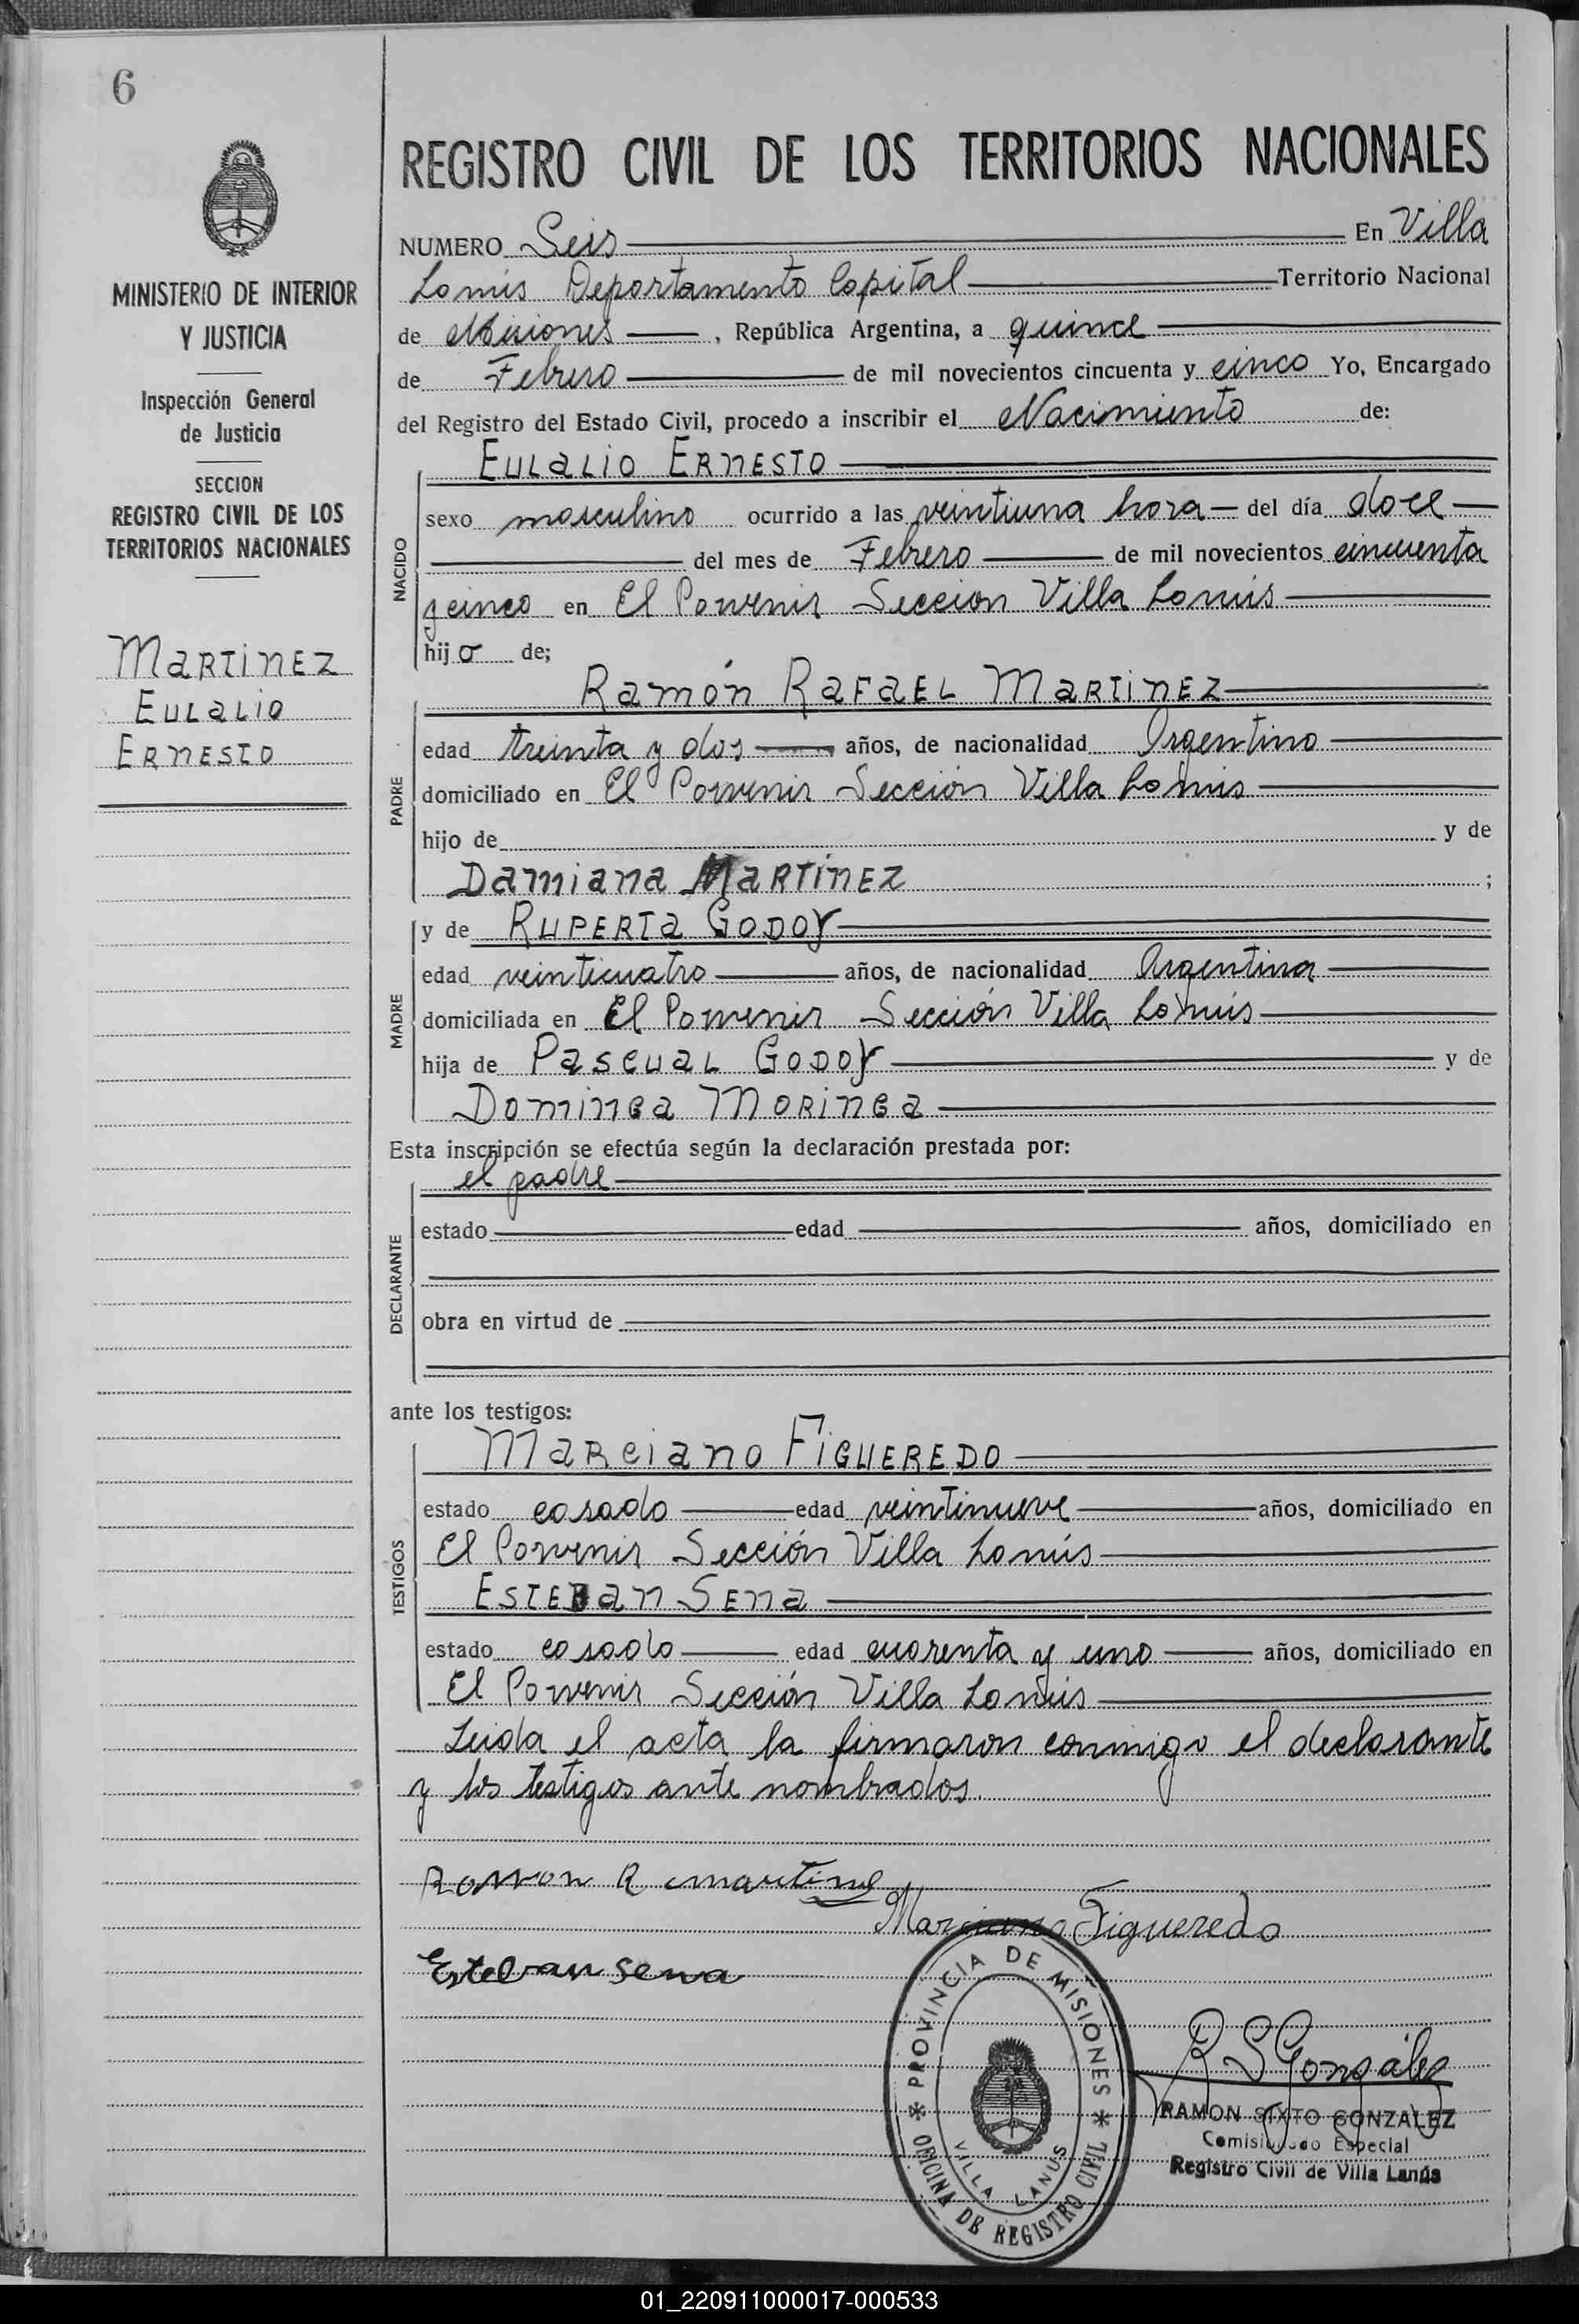 6
MINISTERIO DE INTERIOR
Y JUSTICIA
Inspección General
de Justicia
SECCION
REGISTRO CIVIL DE LOS
TERRITORIOS NACIONALES
MARTINEZ
EULALIO
ERNESTO
REGISTRO CIVIL DE LOS TERRITORIOS NACIONALES
NUMERO Seis En Villa
Lanús Departamento Capital Territorio Nacional
de Misiones, República Argentina, a quince
de Febrero de mil novecientos cincuenta y cinco Yo, Encargado
del Registro del Estado Civil, procedo a inscribir el Nacimiento de:
NACIDO
EULALIO ERNESTO
sexo masculino ocurrido a las veintiuna hora del día doce
del mes de Febrero de mil novecientos cincuenta
y cinco en El Porvenir Seccion Villa Lanús
hijo de;
PADRE
RAMÓN RAFAEL MARTINEZ
edad treinta y dos años, de nacionalidad Argentino
domiciliado en El Porvenir Sección Villa Lanús
hijo de y de
DAMIANA MARTÍNEZ ;
MADRE
y de RUPERTA GODOY
edad veinticuatro años, de nacionalidad Argentina
domiciliada en El Porvenir Sección Villa Lanús
hija de PASCUAL GODOY y de
DOMINGA MORINGA
Esta inscripción se efectúa según la declaración prestada por:
DECLARANTE
el padre
estado edad años, domiciliado en
obra en virtud de
ante los testigos:
TESTIGOS
MARCIANO FIGUEREDO
estado casado edad veintinueve años, domiciliado en
El Porvenir Sección Villa Lanús
ESTEBAN SENA
estado casado edad cuarenta y uno años, domiciliado en
El Porvenir Sección Villa Lanús
Leida el acta la firmaron conmigo el declarante
y los testigos ante nombrados.
Ramon R martinez
Marciano Figueredo
Estevan Sena
PROVINCIA DE MISIONES
VILLA LANUS
OFICINA DE REGISTRO CIVIL
R S González
RAMON SIXTO GONZALEZ
Comisionado Especial
Registro Civil de Villa Lanús
01_220911000017-000533